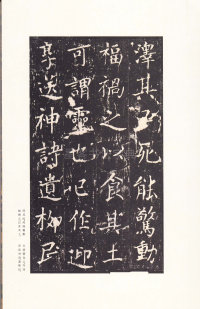 澤其民死能驚動
福禍之以食其土
可謂靈也已作迎
享送神詩遺柳民